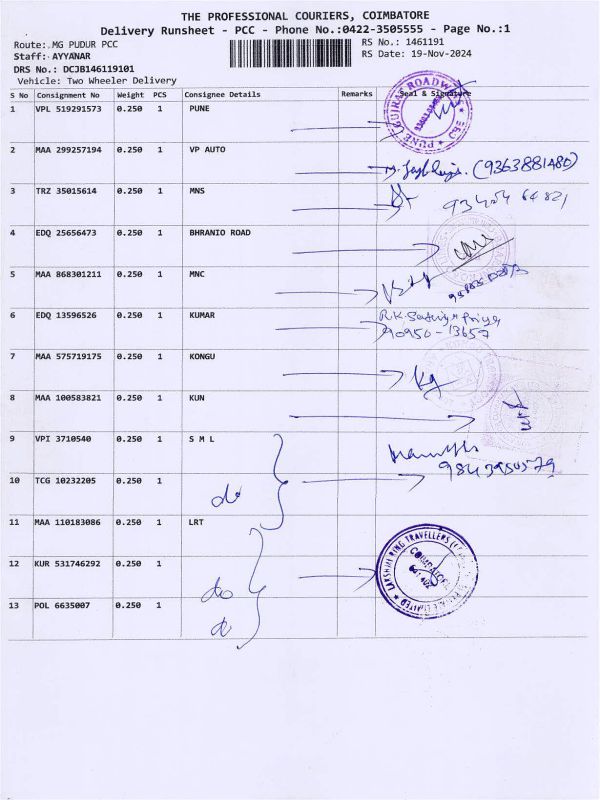 THE PROFESSIONAL COURIERS, COIMBATORE
Delivery Runsheet - PCC - Phone No.:0422-3505555 - Page No.:1
Route: MG PUDUR PCC RS No.: 1461191
Staff: AYYANAR RS Date: 19-Nov-2024
DRS No.: DCJB146119101
Vehicle: Two Wheeler Delivery
S No Consignment No Weight PCS Consignee Details Remarks Seal & Signature
1 VPL 519291573 0.250 1 PUNE
2 MAA 299257194 0.250 1 VP AUTO
(9363881480)
3 TRZ 35015614 0.250 1 MNS
4 EDQ 25656473 0.250 1 BHRANIO ROAD
5 MAA 868301211 0.250 1 MNC
6 EDQ 13596526 0.250 1 KUMAR R.K. Sathiya Priya
90950-13657
7 MAA 575719175 0.250 1 KONGU
Kg
8 MAA 100583821 0.250 1 KUN
9 VPI 3710540 0.250 1 S M L
9843980579
10 TCG 10232205 0.250 1
do
11 MAA 110183086 0.250 1 LRT
12 KUR 531746292 0.250 1
do
13 POL 6635007 0.250 1
LAKSHMI RING TRAVELLERS
COIMBATORE